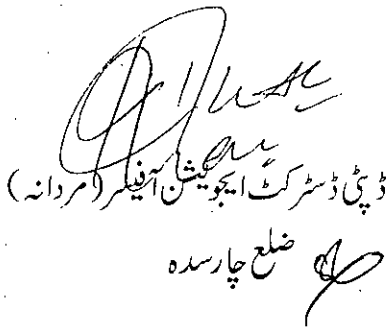 ڈپٹی ڈسٹرکٹ ایجوکیشن آفیسر (مردانہ)
ضلع چارسدہ